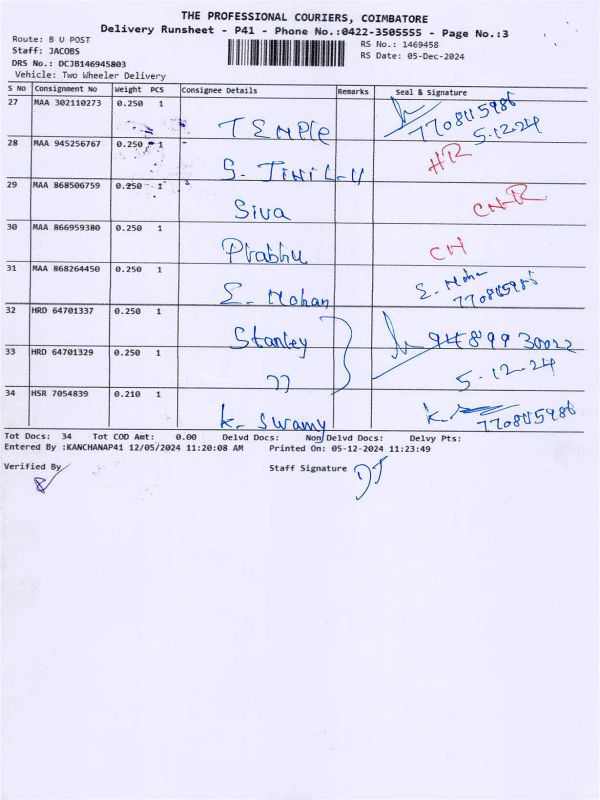 THE PROFESSIONAL COURIERS, COIMBATORE
Delivery Runsheet - P41 - Phone No.:0422-3505555 - Page No.:3
Route: B U POST
RS No.: 1469458
Staff: JACOBS
RS Date: 05-Dec-2024
DRS No.: DCJB146945803
Vehicle: Two Wheeler Delivery
S No Consignment No Weight PCS Consignee Details Remarks Seal & Signature
27 MAA 302110273 0.250 1 TEMPle 7708115986
5.12.24
28 MAA 945256767 0.250 1 S. HR
29 MAA 868506759 0.250 1 Siva
30 MAA 866959380 0.250 1 Prabhu CH
31 MAA 868264450 0.250 1 E. Mohan E. Mohan
7708115986
32 HRD 64701337 0.250 1 Stanley 9489930022
33 HRD 64701329 0.250 1 " 5.12.24
34 HSR 7054839 0.210 1 K. Swamy K. 7708115986
Tot Docs: 34 Tot COD Amt: 0.00 Delvd Docs: Non Delvd Docs: Delvy Pts:
Entered By :KANCHANAP41 12/05/2024 11:20:08 AM Printed On: 05-12-2024 11:23:49
Verified By Staff Signature